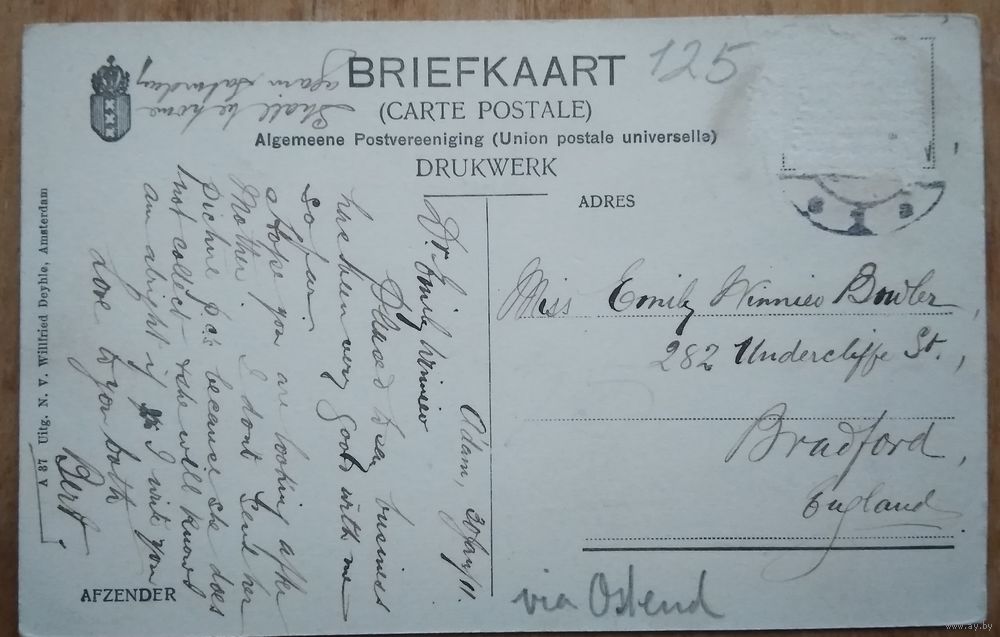 BRIEFKAART
(CARTE POSTALE)
Algemeene Postvereeniging (Union postale universelle)
DRUKWERK
125
ADRES
Miss Emily Winnieo Bowler
282 Undercliffe St.,
Bradford,
England
via Ostend
A'dam, 20/11.
Dr. Emily Winnieo
Pleased business
has been very good with me
so far.
Hope you are looking after
Mother. I dont send her
picture p.c's because she does
not collect & she well knows
am alright if I write you
Love to you both
Bert
Shall be home
again Saturday
AFZENDER
A 87 Uitg. N. V. Willfried Deyhle, Amsterdam
www.ay.by